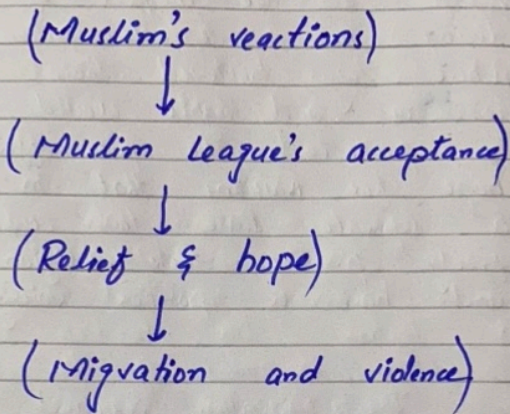 (Muslim's reactions)
↓
(Muslim League's acceptance)
↓
(Relief & hope)
↓
(Migration and violence)